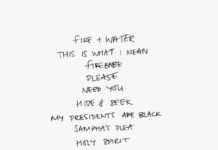 FIRE + WATER
THIS IS WHAT I MEAN
FIREBABE
PLEASE
NEED YOU
HIDE & SEEK
MY PRESIDENTS ARE BLACK
SAMPHA'S PLEA
HOLY SPIRIT